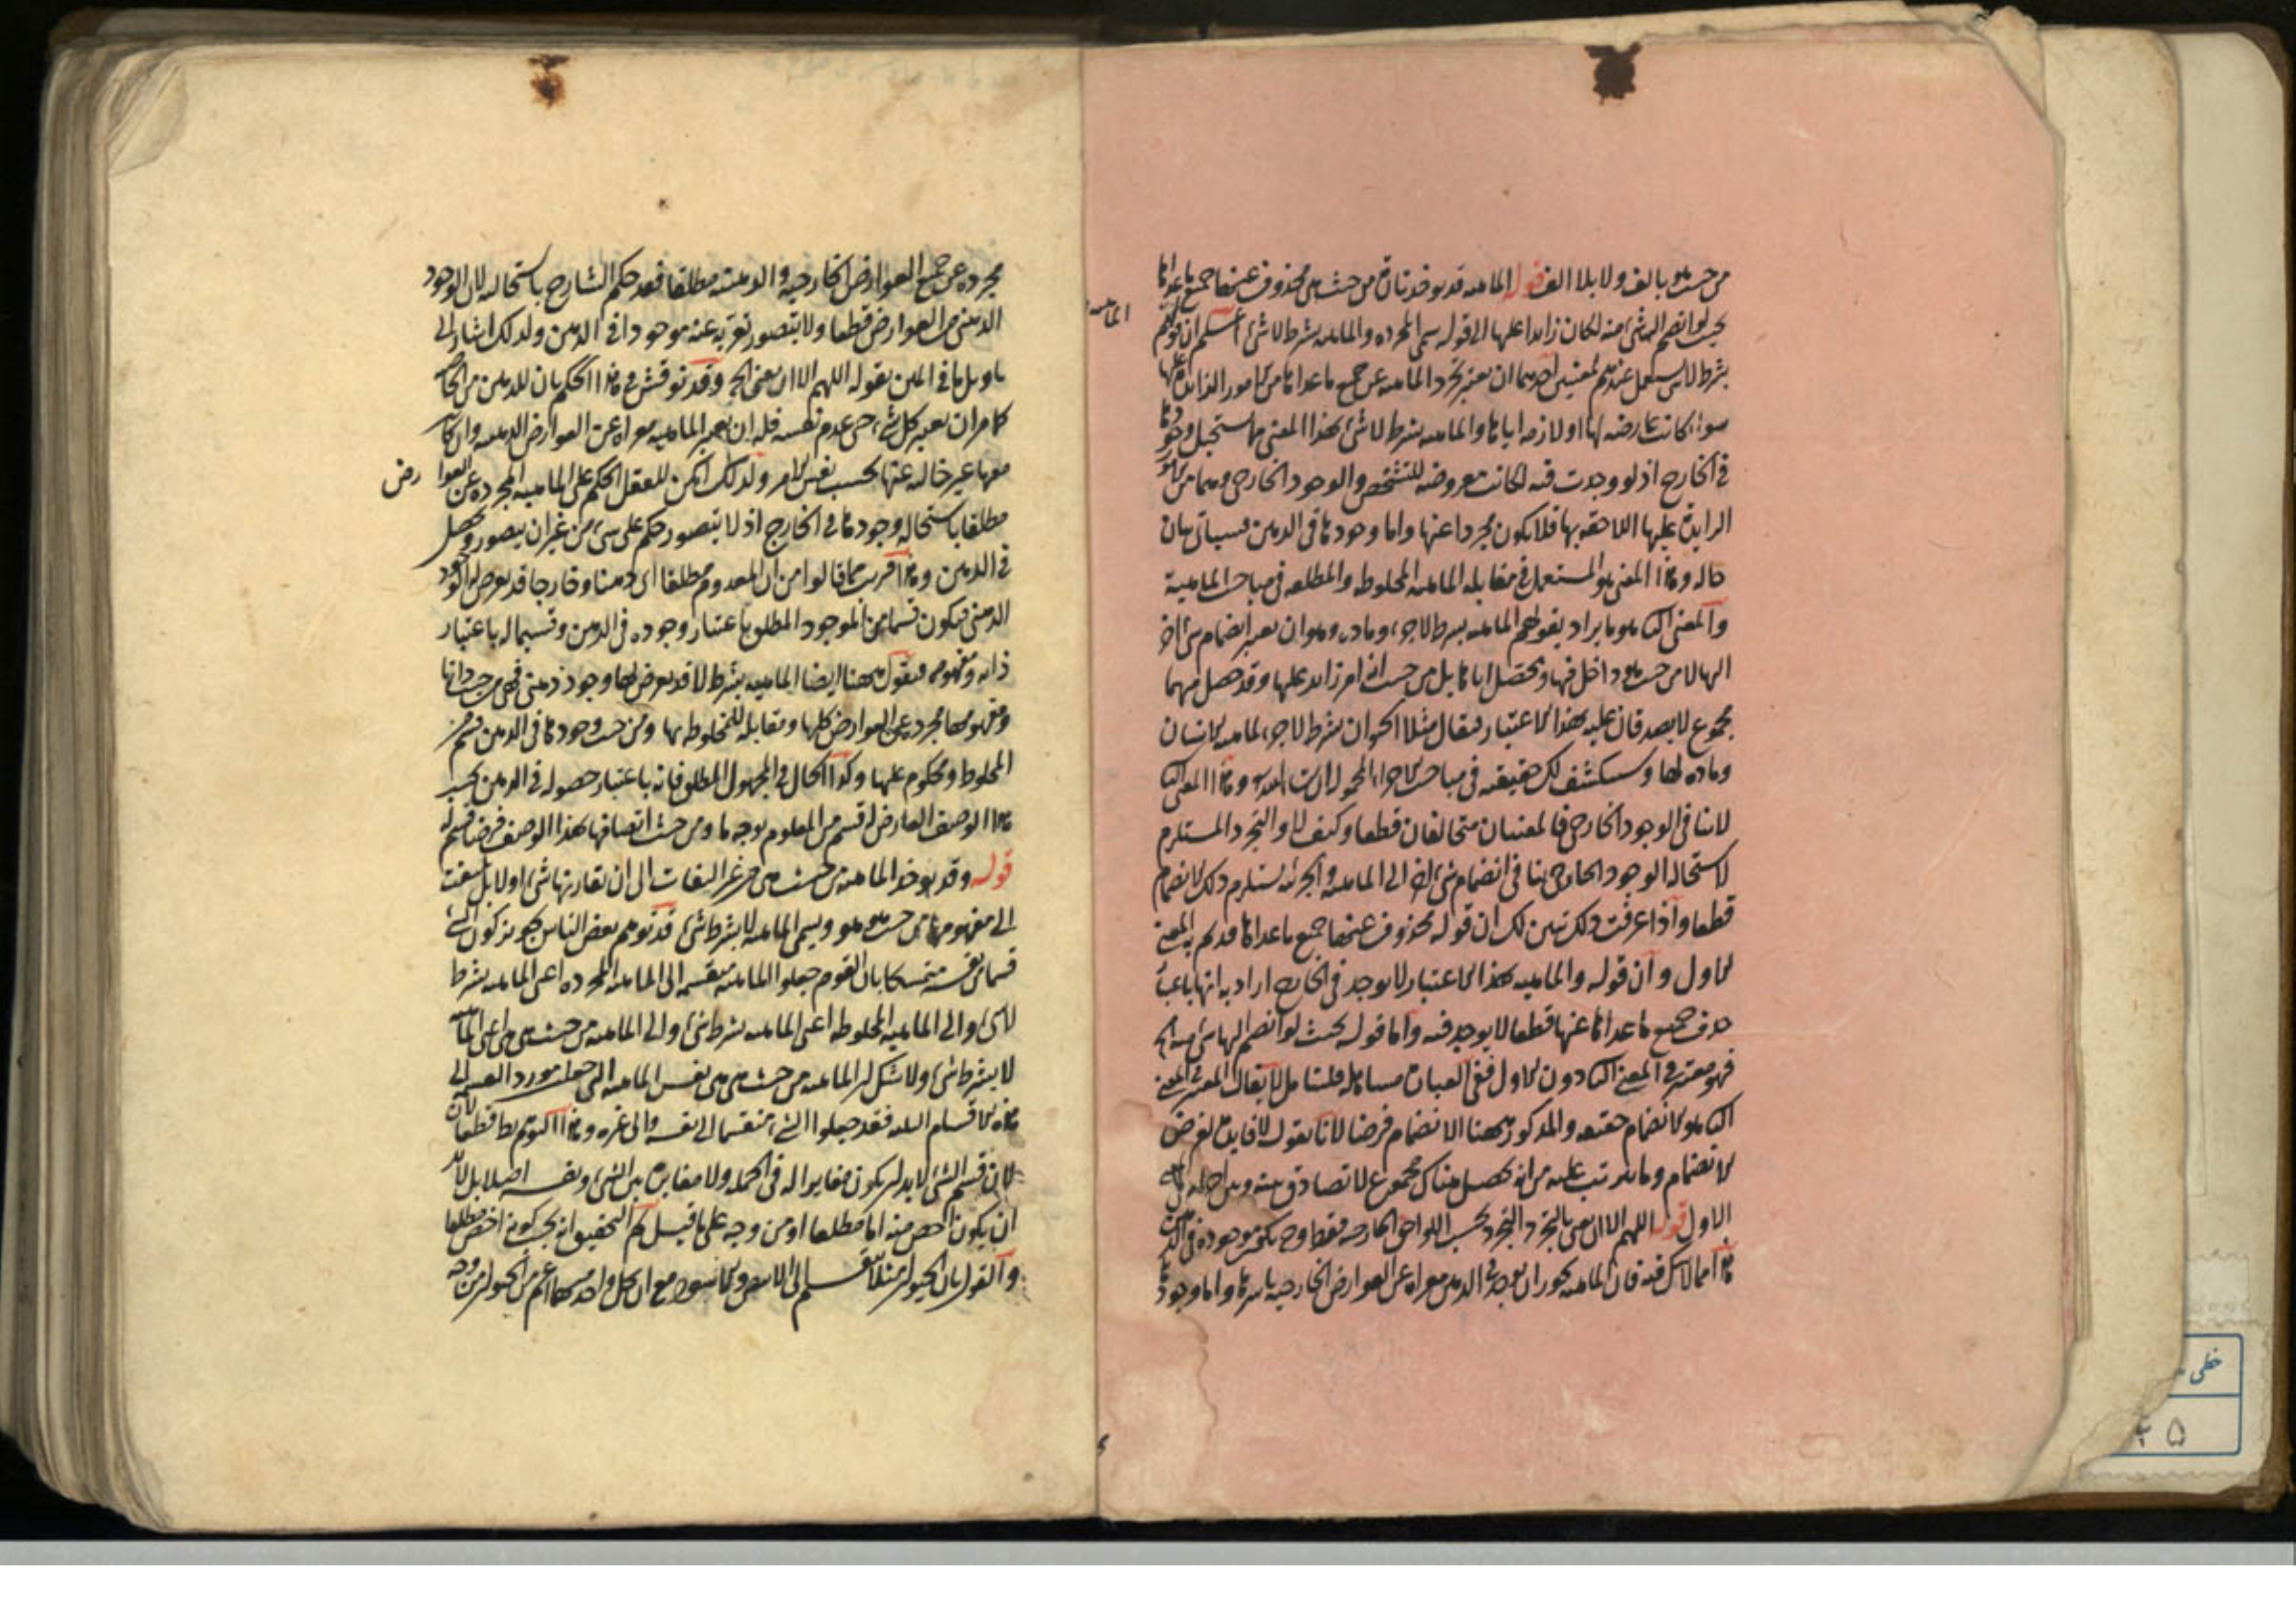 من حيث هو بالف ولا بلا الف قوله الماهية قد يؤخذ تارة من حيث هي محذوف عنها جميع ما عداها
بحيث لو انضم اليها شئ منه لكان زايدا عليها الى قوله سمى المجرده والماهية بشرط لا شئ اعلم ان قولهم
بشرط لا شئ يستعمل عندهم لمعنيين احدهما ان يعتبر تجرد الماهيه عن جميع ما عداها من الامور الزائدة عليها
سواء كانت عارضه لها او لازمه اياها والماهيه بشرط لا شئ بهذا المعنى مما يستحيل وجودها
في الخارج اذ لو وجدت فيه لكانت معروضه للتشخص والوجود الخارجي وهما من الامور
الزايدة عليها اللاحقه بها فلا يكون مجردا عنها واما وجودها في الذهن فسياتى بيان
حاله وهذا المعنى هو المستعمل في مقابله الماهيه المخلوطه والمطلقه في مباحث الماهية
والمعنى الثانى هو ما يراد بقولهم الماهيه بشرط لا جزء وماده وهو ان يعتبر انضمام شئ اخر
اليها لا من حيث هو داخل فيها ويحصل اياها بل من حيث انه امر زائد عليها وقد حصل منهما
مجموع لا يصدقان عليه بهذا الاعتبار فيقال مثلا الحيوان بشرط لا جزء لماهيه الانسان
وماده لها وسيكشف لك حقيقته في مباحث الاجزاء المحموله ان شاء الله وهذا المعنى الثانى
لا ينافى الوجود الخارجى فالمعنيان متخالفان قطعا وكيف لا والتجرد المستلزم
لاستحاله الوجود الخارجى ينافى انضمام شئ اخر الى الماهيه والجزئيه يستلزم ذلك الانضمام
قطعا واذا عرفت ذلك تبين لك ان قوله محذوف عنها جميع ما عداها قد يهم به المعنى
الاول وان قوله والماهيه بهذا الاعتبار لا يوجد في الخارج اراد به انها باعتبار
حذف جميع ما عداها عنها قطعا لا يوجد فيه واما قوله بحيث لو انضم اليها شئ منه الخ
فهو معتبر في المعنى الثانى دون الاول ففى العبارة مساهله فلتتامل لا يقال المعتبر في المعنى
الثانى هو الانضمام حقيقه والمذكور ههنا الانضمام فرضا لانا نقول لا فايدة بفرض
الانضمام وما يترتب عليه من انه يحصل هناك مجموع لا تصادق بينه وبين اجزائه في المعنى
الاول قوله اللهم الا ان يعنى بالتجرد التجرد بحسب اللواحق الخارجيه فقط وح يكون موجوده في الذهن
هذا مما لا شك فيه فان الماهيه يجوز ان يوجد في الذهن معراه عن العوارض الخارجيه باسرها واما وجودها
الماهية
مجرده عن جميع العوارض الخارجيه والذهنيه مطلقا فقد حكم الشارح باستحالته لان الوجود
الذهنى من العوارض قطعا ولا يتصور تعريه عنه موجودا في الذهن ولذلك اشار الى
تاويل ما في المتن بقوله اللهم الا ان يعنى الخ وقد نوقش في هذا الحكم بان للذهن
ان يعتبر كل شئ حتى عدم نفسه فله ان يعتبر الماهيه معراه عن العوارض الذهنيه وان كانت
معها غير خاليه عنها بحسب نفس الامر ولذلك امكن للعقل الحكم على الماهيه المجرده عن العوارض
مطلقا باستحاله وجودها في الخارج اذ لا يتصور حكم على شئ من غير ان يتصور ويحصل
في الذهن وهذا قريب مما قالوا من ان المعدوم مطلقا اى ذهنا وخارجا قد يعرض له الوجود
الذهنى فيكون قسما من الموجود المطلق باعتبار وجوده في الذهن وقسيما له باعتبار
ذاته ومفهومه فيقول ههنا ايضا الماهيه بشرط لا قد يعرض لها وجود ذهنى فهى من حيث ذاتها
ومفهومها مجرده عن العوارض كلها ومقابله للمخلوطه بها ومن حيث وجودها في الذهن قسم من
المخلوط ومحكوم عليها وكذا الحال في المجهول المطلق فانه باعتبار حصوله في الذهن بحسب
هذا الوصف العارض له قسم من المعلوم بوجه ما ومن حيث اتصافها بهذا الوصف فرضا قسيم له
قوله وقد يؤخذ الماهيه من حيث هي من غير التفات الى ان يقارنها شئ او لا بل يلتفت
الى مفهومها من حيث هو هو ويسمى الماهيه لا بشرط شئ قد توهم بعض الناس تجويز كون الشئ
قسما من نفسه متمسكا بان القوم جعلوا الماهيه منقسمه الى الماهيه المجرده اعنى الماهيه بشرط
لا شئ والى الماهيه المخلوطه اعنى الماهيه بشرط شئ والى الماهيه من حيث هي هي اعنى الماهيه
لا بشرط شئ ولا شك ان الماهيه من حيث هي هي نفس الماهيه التى جعلت مورد القسمه الى
هذه الاقسام الثلثه فقد جعلوا الشئ منقسما الى نفسه والى غيره وهذا التوهم بط قطعا لان
لان قسم الشئ لا بد ان يكون مغايرا له في الجمله ولا مغايرة بين الشئ ونفسه اصلا بل لا بد
ان يكون اخص منه اما مطلقا او من وجه على ما قيل ثم التحقيق انه يجب كونه اخص مطلقا
والقول بان الحيوان مثلا ينقسم الى الابيض والاسود مع ان كل واحد منهما اعم من الحيوان من وجه